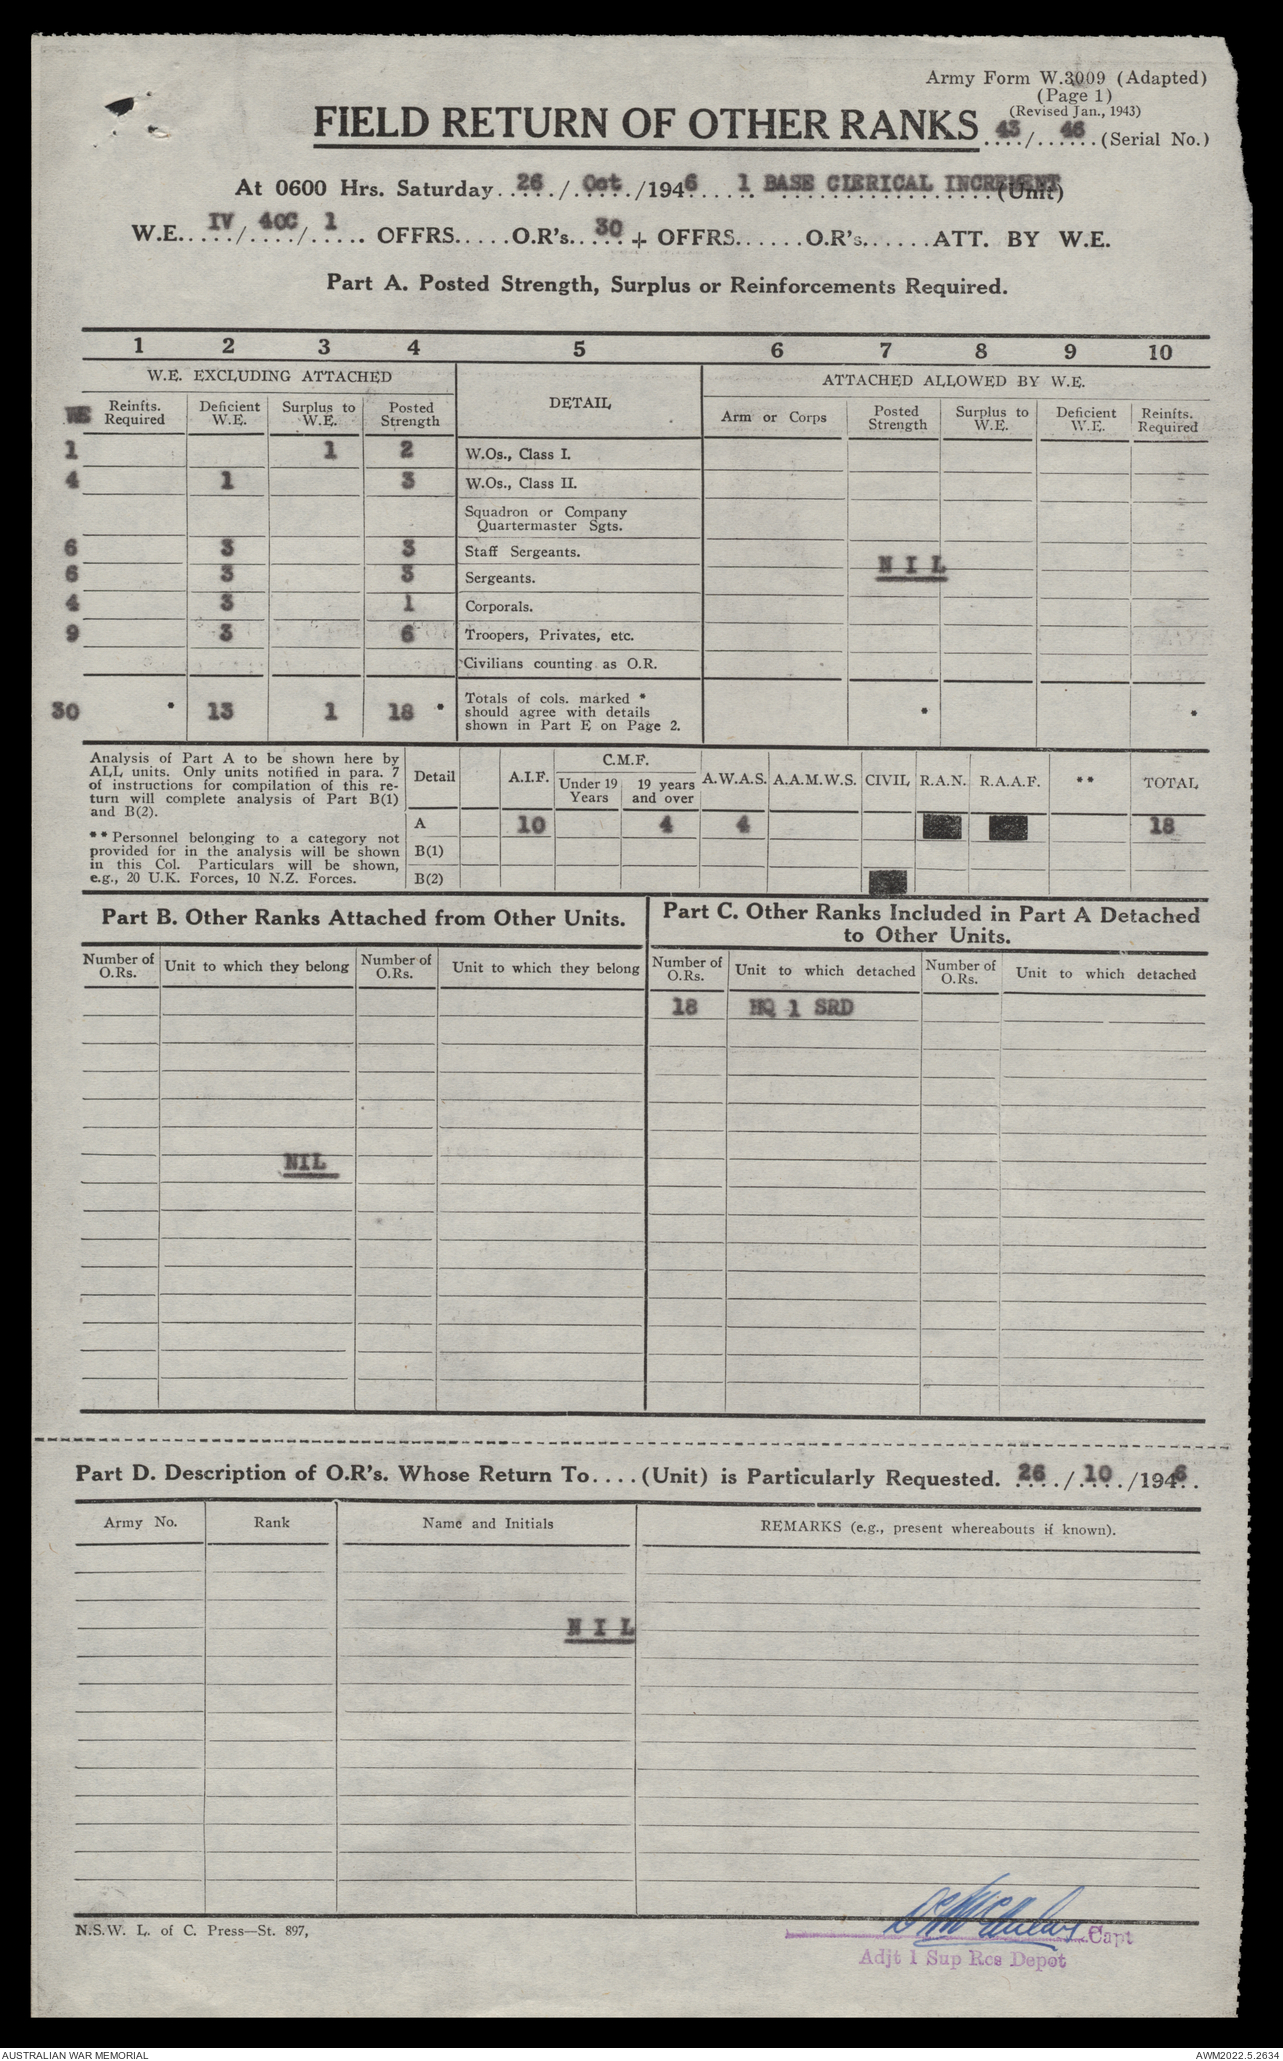 Army Form W.3009 (Adapted)
(Page 1)
(Revised Jan., 1943)
FIELD RETURN OF OTHER RANKS 43/ 46 (Serial No.)
At 0600 Hrs. Saturday 26 / Oct /1946 1 BASE CLERICAL INCREMENT (Unit)
W.E. IV / 40C / 1 OFFRS.....O.R's. 30 + OFFRS......O.R's......ATT. BY W.E.
Part A. Posted Strength, Surplus or Reinforcements Required.
1 2 3 4 5 6 7 8 9 10
W.E. EXCLUDING ATTACHED DETAIL ATTACHED ALLOWED BY W.E.
WE Reinfts. Required Deficient W.E. Surplus to W.E. Posted Strength Arm or Corps Posted Strength Surplus to W.E. Deficient W.E. Reinfts. Required
1 1 2 W.Os., Class I.
4 1 3 W.Os., Class II.
Squadron or Company
Quartermaster Sgts.
6 3 3 Staff Sergeants.
NIL
6 3 3 Sergeants.
4 3 1 Corporals.
9 3 6 Troopers, Privates, etc.
Civilians counting as O.R.
30 * 13 1 18 * Totals of cols. marked *
should agree with details * *
shown in Part E on Page 2.
Analysis of Part A to be shown here by
ALL units. Only units notified in para. 7
of instructions for compilation of this re-
turn will complete analysis of Part B(1)
and B(2).
** Personnel belonging to a category not
provided for in the analysis will be shown
in this Col. Particulars will be shown,
e.g., 20 U.K. Forces, 10 N.Z. Forces.
C.M.F.
Detail A.I.F. Under 19 Years 19 years and over A.W.A.S. A.A.M.W.S. CIVIL R.A.N. R.A.A.F. ** TOTAL
A 10 4 4 18
B(1)
B(2)
Part B. Other Ranks Attached from Other Units.
Part C. Other Ranks Included in Part A Detached
to Other Units.
Number of O.Rs. Unit to which they belong Number of O.Rs. Unit to which they belong Number of O.Rs. Unit to which detached Number of O.Rs. Unit to which detached
18 HQ 1 SRD
NIL
Part D. Description of O.R's. Whose Return To....(Unit) is Particularly Requested. 26 / 10 /1946.
Army No. Rank Name and Initials REMARKS (e.g., present whereabouts if known).
NIL
N.S.W. L. of C. Press—St. 897,
Capt
Adjt 1 Sup Res Depot
AUSTRALIAN WAR MEMORIAL
AWM2022.5.2634